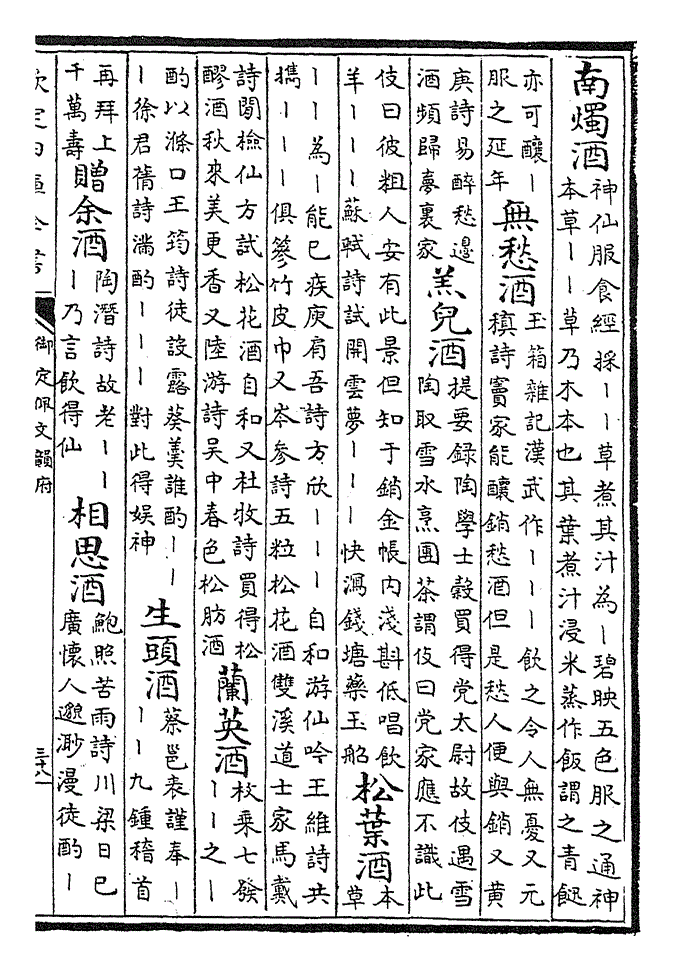 南燭酒神仙服食經採丨丨草煮其汁為丨碧映五色服之通神本草丨丨草乃木本也其葉煮汁浸米蒸作飯謂之青䭀
亦可釀丨服之延年無愁酒玉箱雜記漢武作丨丨丨飲之令人無憂又元稹詩竇家能釀銷愁酒但是愁人便與銷又黄
庚詩易醉愁邊酒頻歸夢裏家羔兒酒提要録陶學士穀買得党太尉故伎遇雪陶取雪水烹團茶謂伎曰党家應不識此
伎曰彼粗人安有此景但知于銷金帳内淺斟低唱飲羊丨丨丨蘇軾詩試開雲夢丨丨丨快瀉錢塘藥玉船松葉酒本草
丨丨為丨能已疾庾肩吾詩方欣丨丨丨自和游仙吟王維詩共攜丨丨丨俱篸竹皮巾又岑參詩五粒松花酒雙溪道士家馬戴
詩閒檢仙方試松花酒自和又杜牧詩買得松醪酒秋來美更香又陸游詩吳中春色松肪酒蘭英酒枚乘七發丨丨之丨
酌以滌口王筠詩徒設露葵羹誰酌丨丨丨徐君蒨詩滿酌丨丨丨對此得娱神生頭酒蔡邕表謹奉丨丨丨九鍾稽首
再拜上千萬壽贈余酒陶潛詩故老丨丨丨乃言飲得仙相思酒鮑照苦雨詩川梁日已廣懷人邈渺漫徒酌丨
欽定四庫全書
御定佩文韻府